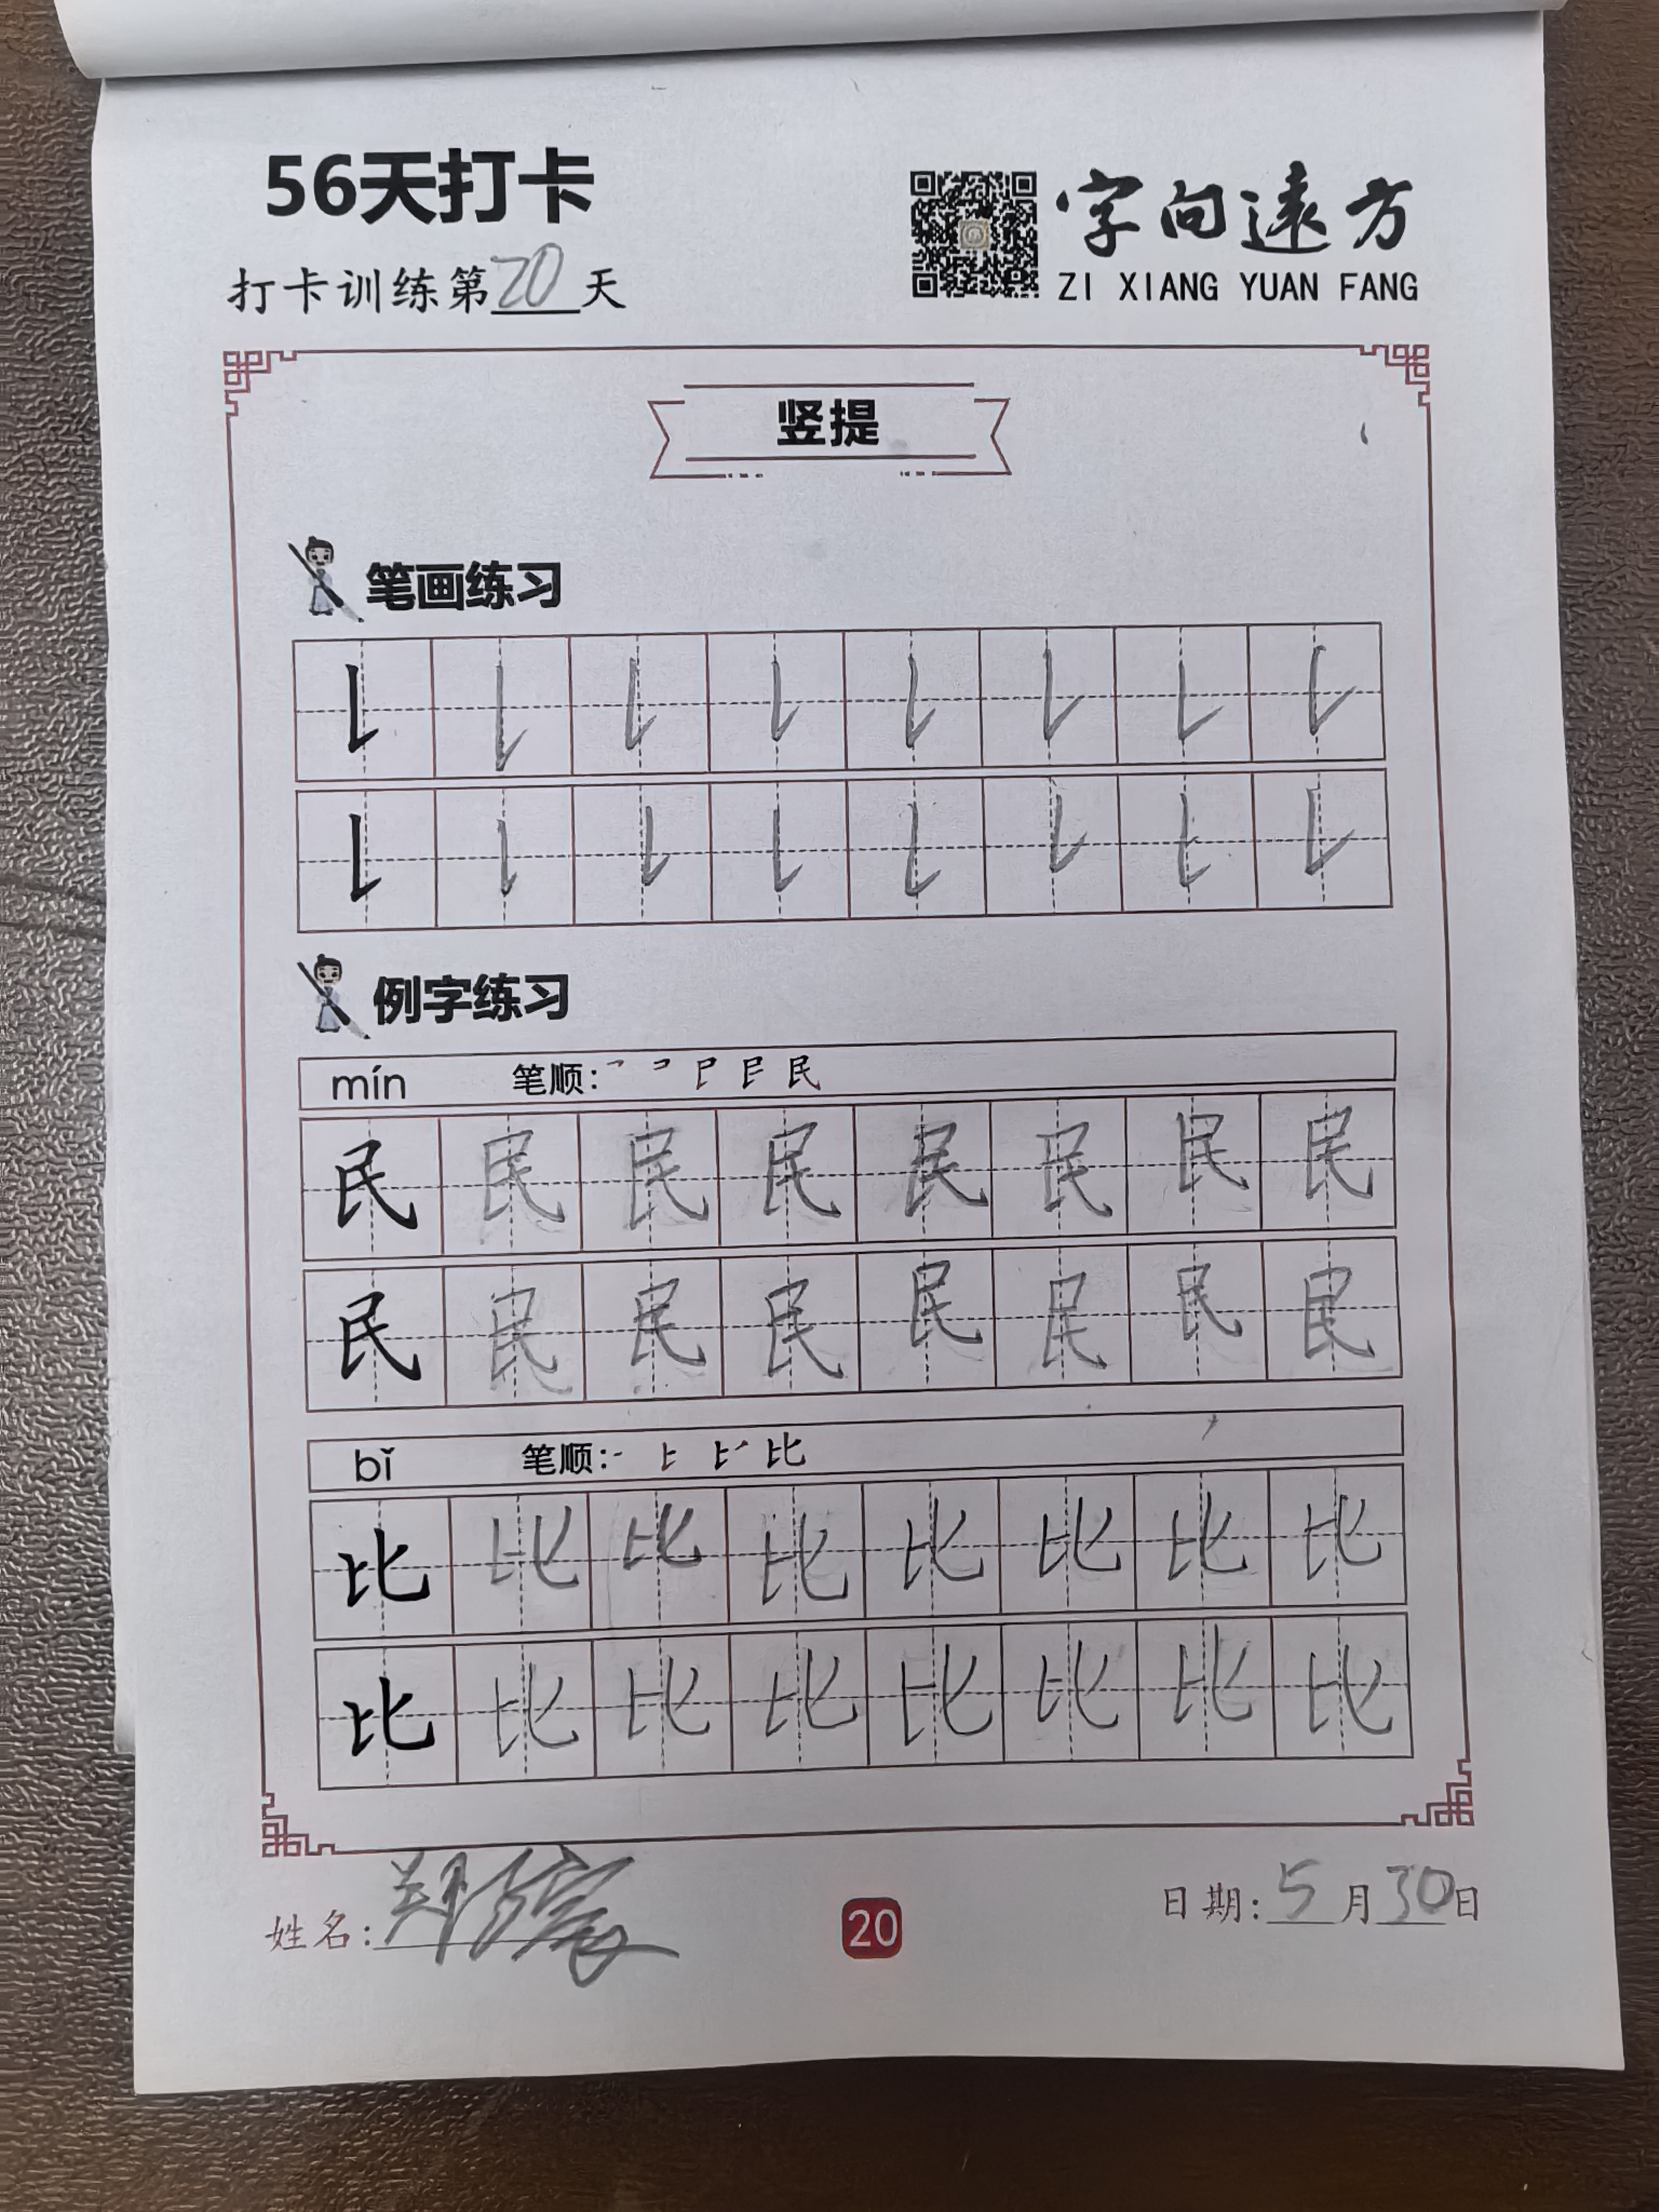 56天打卡
字向遠方
打卡训练第20天
ZI XIANG YUAN FANG
竖提
笔画练习
例字练习
mín 笔顺: 民
民 民 民 民 民 民 民 民
民 民 民 民 民 民 民 民
bǐ 笔顺: 比
比 比 比 比 比 比 比 比
比 比 比 比 比 比 比 比
姓名:
20
日期:5月30日